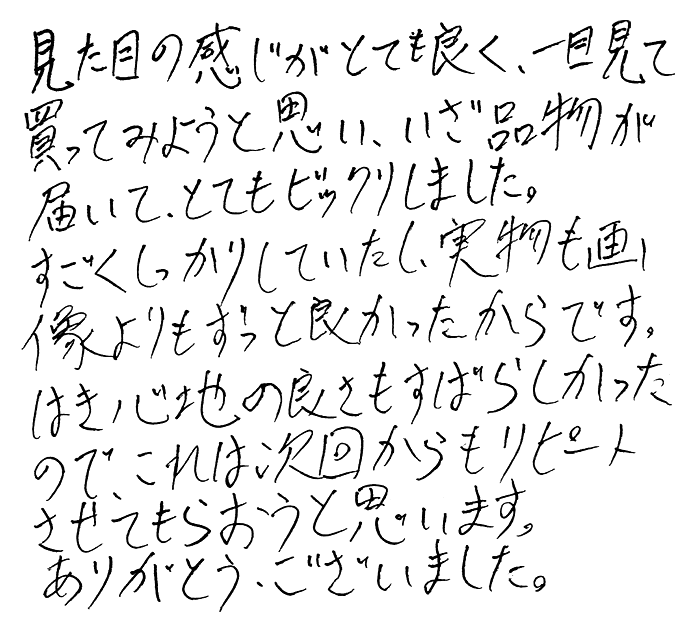 見た目の感じがとても良く、一目見て
買ってみようと思い、いざ品物が
届いて、とてもビックリしました。
すごくしっかりしていたし、実物も画
像よりもずっと良かったからです。
はき心地の良さもすばらしかった
ので、これは次回からもリピート
させてもらおうと思います。
ありがとう、ございました。